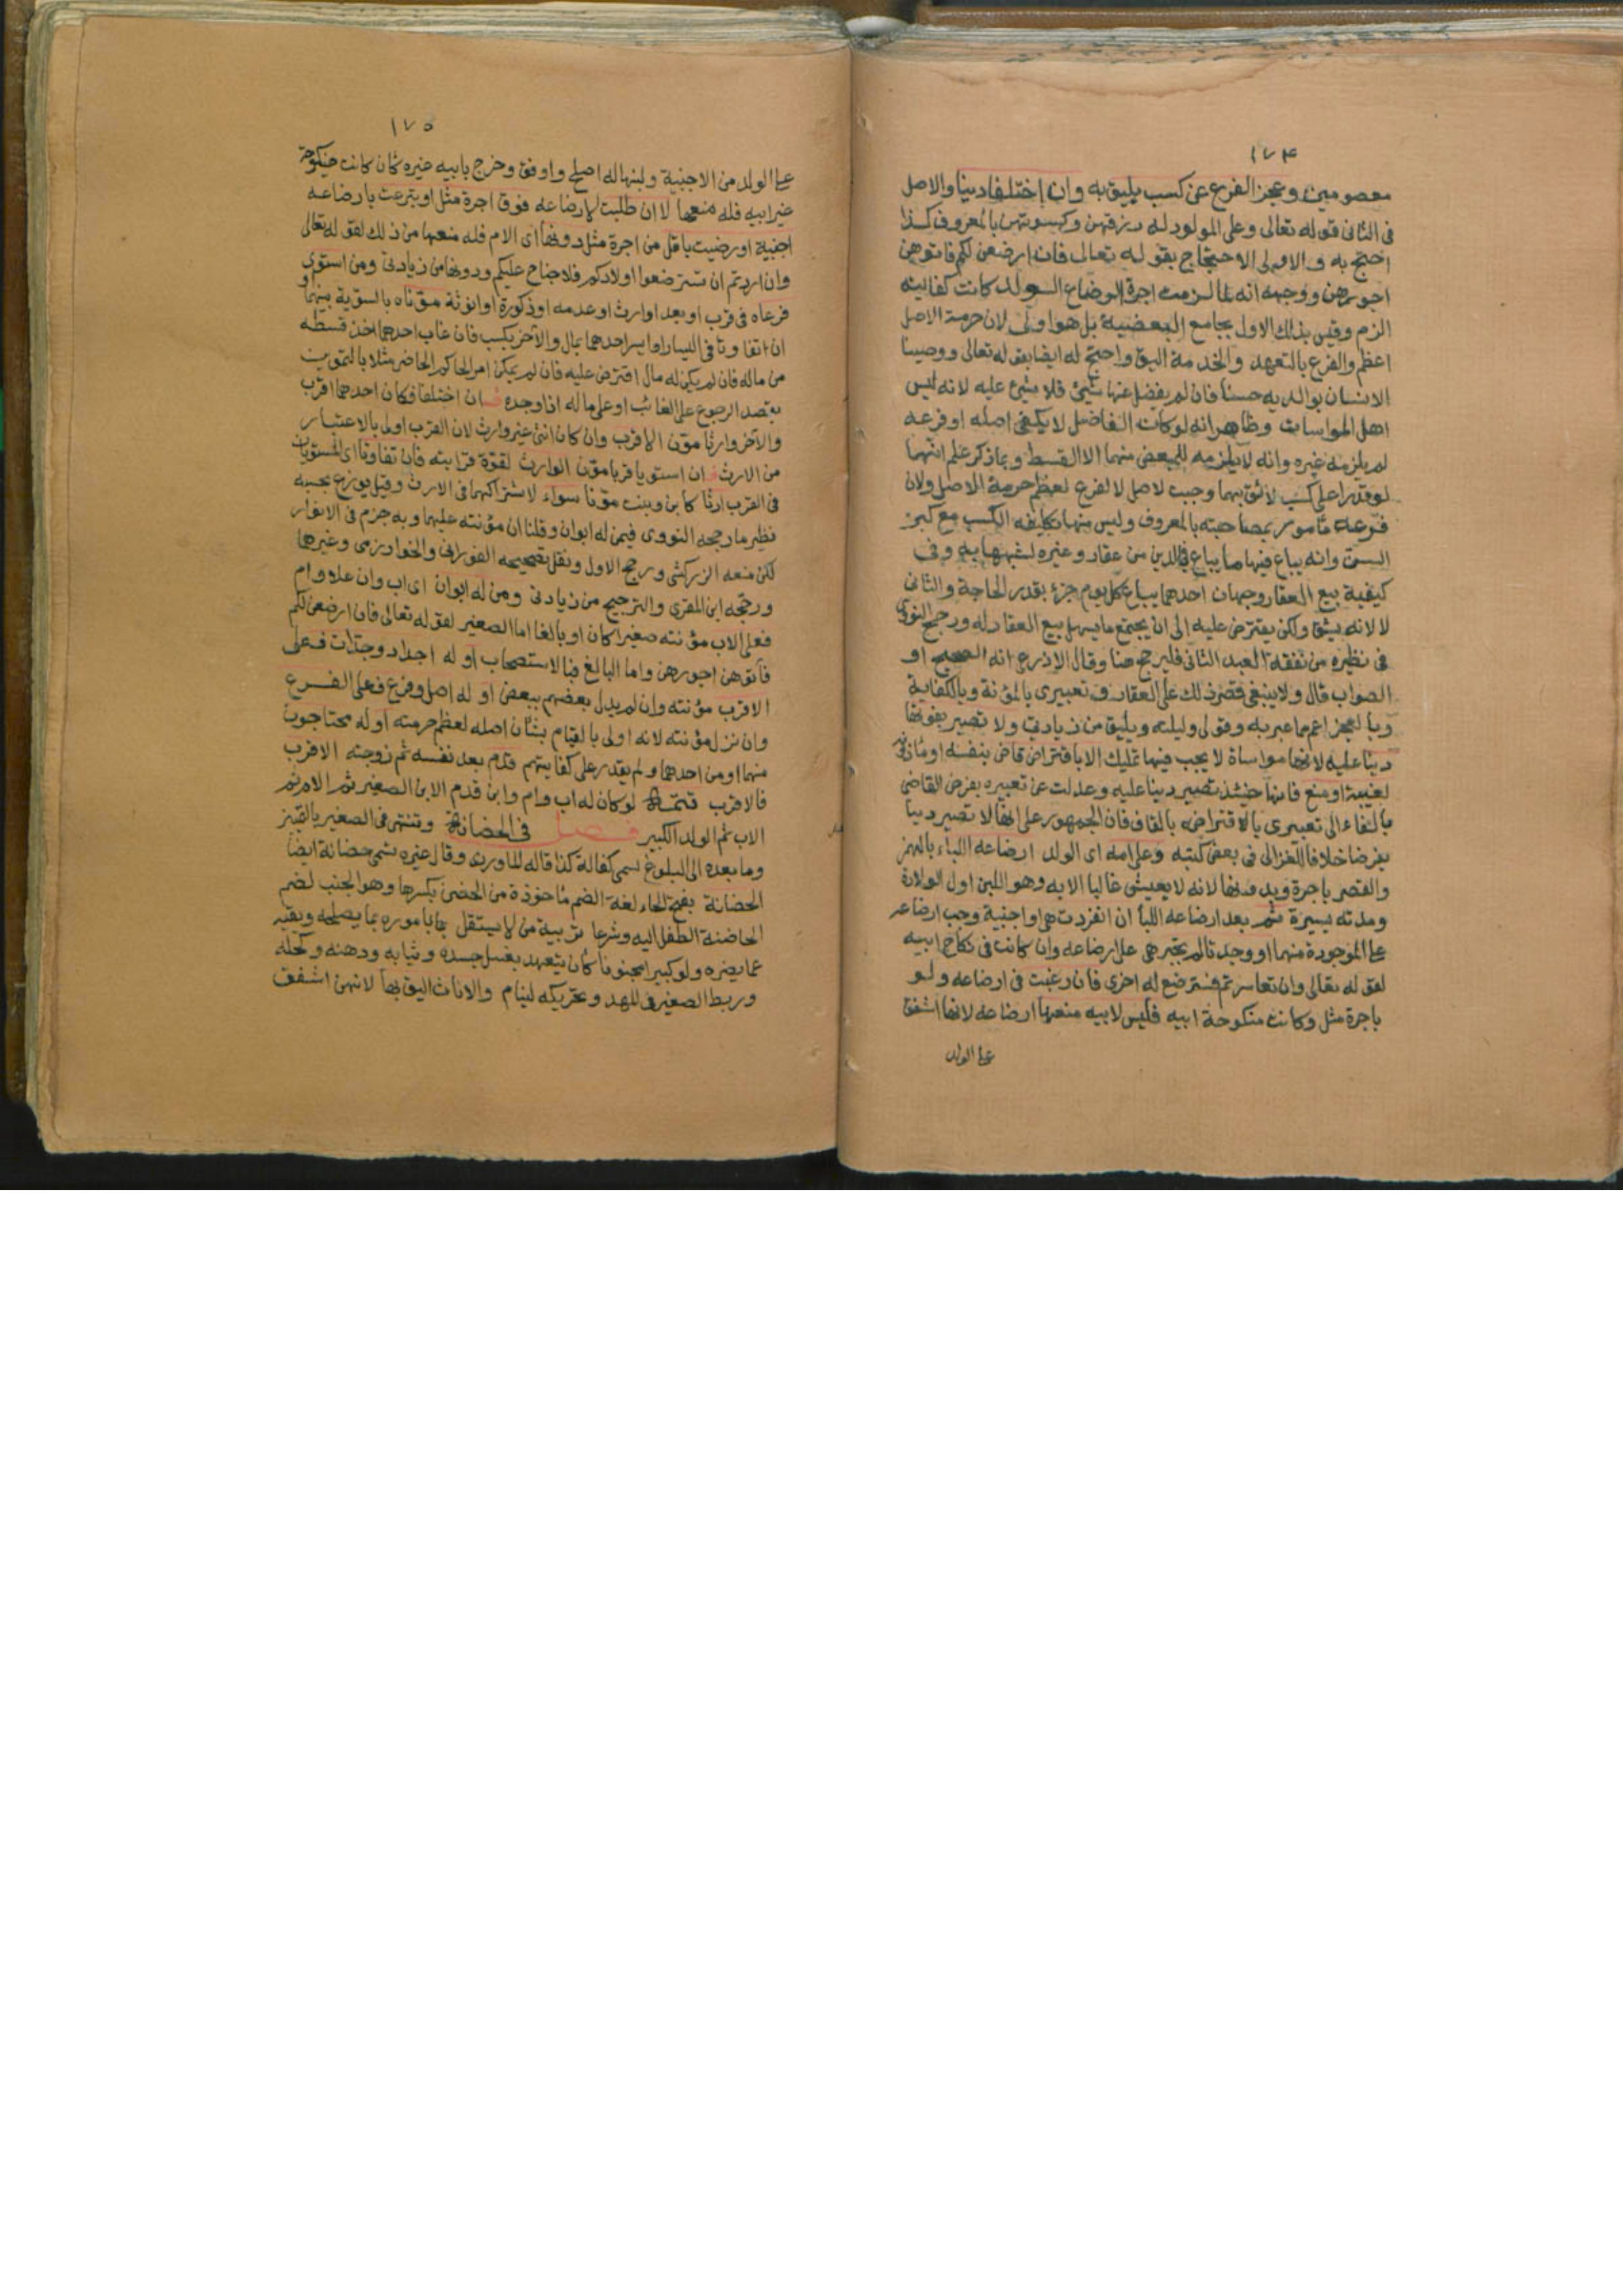 ١٧٤
معصومين وعجز الفرع عن كسب يليق به وان اختلفا دينا والاصل
فى الثانى قوله تعالى وعلى المولود له رزقهن وكسوتهن بالمعروف كذا
احتج به والاولى الاحتجاج بقوله تعالى فان ارضعن لكم فاتوهن
اجورهن ووجهه انه لما لزمت اجرة الرضاع الولد كانت كفايته
الزم وقيس بذلك الاول بجامع البعضية بل هو اولى لان حرمة الاصل
اعظم والفرع بالتعهد والخدمة اليق واحتج له ايضا بقوله تعالى ووصينا
الانسان بوالديه حسنا فان لم يفضل عنها شئ فلا شئ عليه لانه ليس
اهل المواسات وظاهر انه لو كان الفاضل لا يكفى اصله او فرعه
لم يلزمه غيره وانه لا يلزمه للبعض منهما الا القسط وبما ذكر علم انهما
لو قدرا على كسب لائق بهما وجبت لاصل لا لفرع لعظم حرمة الاصل ولان
فرعه مامور بمصاحبته بالمعروف وليس منها تكليفه الكسب مع كبر
السن وانه يباع فيها ما يباع فى الدين من عقار وغيره لشبهها به وفى
كيفية بيع العقار وجهان احدهما يباع كل يوم جزء بقدر الحاجة والثانى
لا لانه يشق ولكن يقترض عليه الى ان يجتمع ما يسهل بيع العقار له ورجح النووى
فى نظيره من نفقة العبد الثانى فليرجح هنا وقال الاذرعى انه الصحيح او
الصواب قال ولا ينبغى قصر ذلك على العقار وتعبيرى بالمؤنة وبالكفاية
وبالعجز اعم مما عبر به وقولى وليلته ويليق من زيادتى ولا تصير بفوتها
دينا عليه لانها مواساة لا يجب فيها تمليك الا باقتراض قاض بنفسه او ماذونه
لغيبة او منع فانها حينئذ تصير دينا عليه وعدلت عن تعبيره بفرض القاضى
بالفاء الى تعبيرى بالاقتراض بالقاف فان الجمهور على انها لا تصير دينا
بفرضا خلافا للغزالى فى بعض كتبه وعلى امه اى الولد ارضاعه اللباء بالهمز
والقصر باجرة وبدونها لانه لا يعيش غالبا الا به وهو اللبن اول الولادة
ومدته يسيرة ثم بعد ارضاعه اللبأ ان انفردت هى او اجنبية وجب ارضاعه
على الموجودة منهما او وجدتا لم تجبر هى على ارضاعه وان كانت فى نكاح ابيه
لقوله تعالى وان تعاسرتم فسترضع له اخرى فان رغبت فى ارضاعه ولو
باجرة مثل وكانت منكوحة ابيه فليس لابيه منعها ارضاعه لانها اشفق
على الولد
١٧٥
على الولد من الاجنبية ولبنها له اصلح واوفق وخرج بابيه غيره كان كانت منكوحة
غير ابيه فله منعها لا ان طلبت لارضاعه فوق اجرة مثل او تبرعت بارضاعه
اجنبية او رضيت باقل من اجرة مثل دونها اى الام فله منعها من ذلك لقوله تعالى
وان اردتم ان تسترضعوا اولادكم فلا جناح عليكم ودونها من زيادتى ومن استوى
فرعاه فى قرب او بعد او ارث او عدمه او ذكورة او انوثة موناه بالسوية بينهما و
ان تفاوتا فى اليسار او ايسر احدهما بمال والآخر بكسب فان غاب احدهما اخذ قسطه
من ماله فان لم يكن له مال اقترض عليه فان لم يمكن امر الحاكم الحاضر مثلا بالتموين
بقصد الرجوع على الغائب او على ماله اذا وجده فان اختلفا فكان احدهما اقرب
والآخر وارثا مون الاقرب وان كان انثى غير وارث لان القرب اولى بالاعتبار
من الارث فان استويا قربا مون الوارث لقوة قرابته فان تفاوتا اى المستويان
فى القرب ارثا كابن وبنت مونا سواء لاشتراكهما فى الارث وقيل يوزع بحسبه
نظير ما رجحه النووى فيمن له ابوان وقلنا ان مؤنته عليهما وبه جزم فى الانوار
لكن منعه الزركشى ورجح الاول ونقل تصحيحه الفورانى والخوارزمى وغيرهما
ورجحه ابن المقرى والترجيح من زيادتى ومن له ابوان اى اب وان علا وام
فعلى الاب مؤنته صغيرا كان او بالغا اما الصغير لقوله تعالى فان ارضعن لكم
فآتوهن اجورهن واما البالغ فبالاستصحاب او له اجداد وجدات فعلى
الاقرب مؤنته وان لم يدل بعضهم ببعض او له اصل وفرع فعلى الفرع
وان نزل مؤنته لانه اولى بالقيام بشان اصله لعظم حرمته او له محتاجون
منهما او من احدهما ولم يقدر على كفايتهم قدم بعد نفسه ثم زوجته الاقرب
فالاقرب تتمة لو كان له اب وام وابن قدم الابن الصغير ثم الام ثم
الاب ثم الولد الكبير فصل فى الحضانة وتنتهى فى الصغير بالتميز
وما بعده الى البلوغ تسمى كفالة كذا قاله الماوردى وقال غيره تسمى حضانة ايضا
الحضانة بفتح الحاء لغة الضم ماخوذة من الحضن بكسرها وهو الجنب لضم
الحاضنة الطفل اليه وشرعا تربية من لا يستقل باموره بما يصلحه ويقيه
عما يضره ولو كبيرا مجنونا كان يتعهد بغسل جسده وثيابه ودهنه وكحله
وربط الصغير فى المهد وتحريكه لينام والاناث اليق بها لانهن اشفق